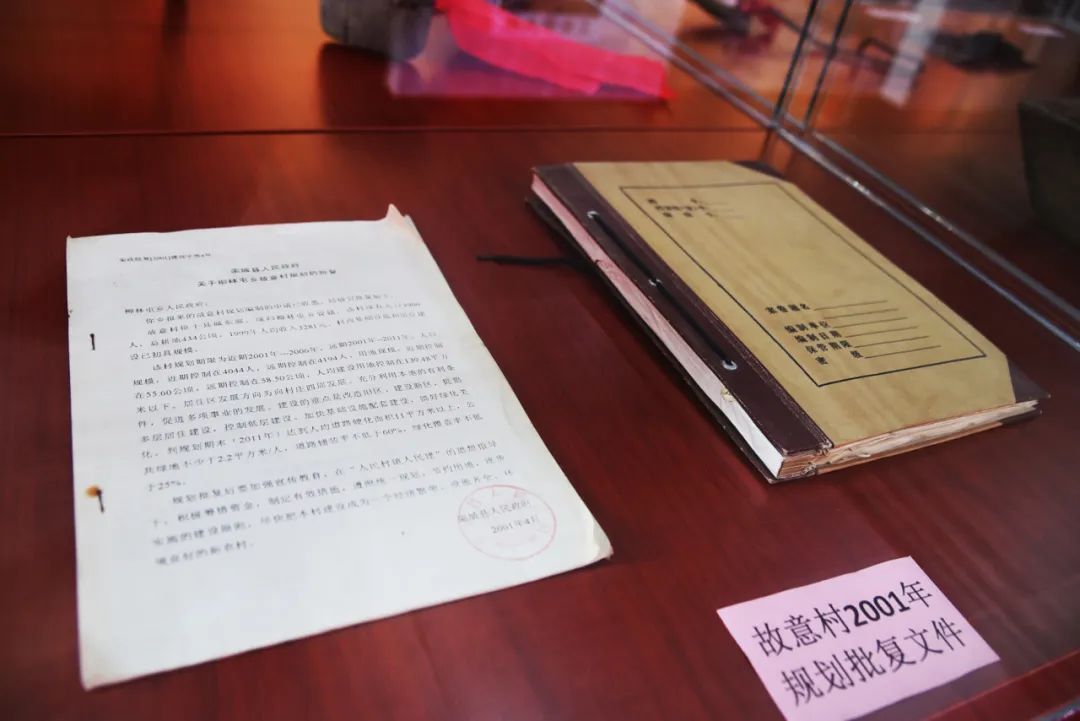 栾城县人民政府
关于柳林屯乡故意村规划的批复
柳林屯乡人民政府:
你乡报来的故意村规划编制的申请已收悉,经研究批复如下:
故意村位于县城东部,
人,总耕地434公顷,1999年人均收入3281元,村内基础设施和居住建
设已初具规模。
该村规划期限为近期2001年—2006年,远期2001年—2011年。人口
规模,近期控制在4044人,远期控制在4194人,用地规模,近期控制
在55.60公顷,远期控制在58.50公顷,人均建设用地控制在139.48平方
米以下。居住区发展方向为向村庄四周发展。充分利用本地的有利条
件,促进多项事业的发展。建设的重点是改造旧区,建设新区,提倡
多层居住建设,控制低层建设,加快基础设施配套建设,搞好绿化美
化,到规划期末(2011年)达到人均道路硬化面积11平方米以上,公
共绿地不少于2.2平方米/人,道路铺装率不低于60%,绿化覆盖率不低
于25%。
规划批复后要加强宣传教育,在“人民村镇人民建”的思想指导
下,积极筹措资金,制定有效措施,遵照统一规划,节约用地,逐步
实施的建设原则,尽快把本村建设成为一个经济繁荣,设施齐全,环
境良好的新农村。
栾城县人民政府
2001年4月
案卷题名
编制单区
编制日期
保管期限
密级
故意村2001年
规划批复文件